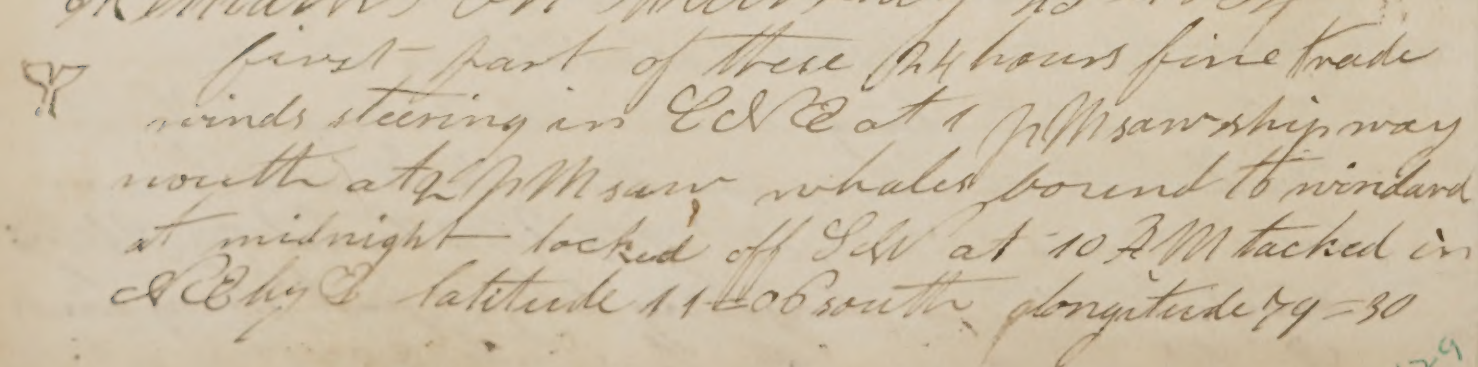 Remarks on
first part of these 24 hours fine trade
winds steering in ENE at 1 PM saw ship way
nouth at 2 PM saw whales bound to windard
at midnight tocked off SW at 10 AM tacked in
NE by E latitude 11=06 south longitude 79=30
29